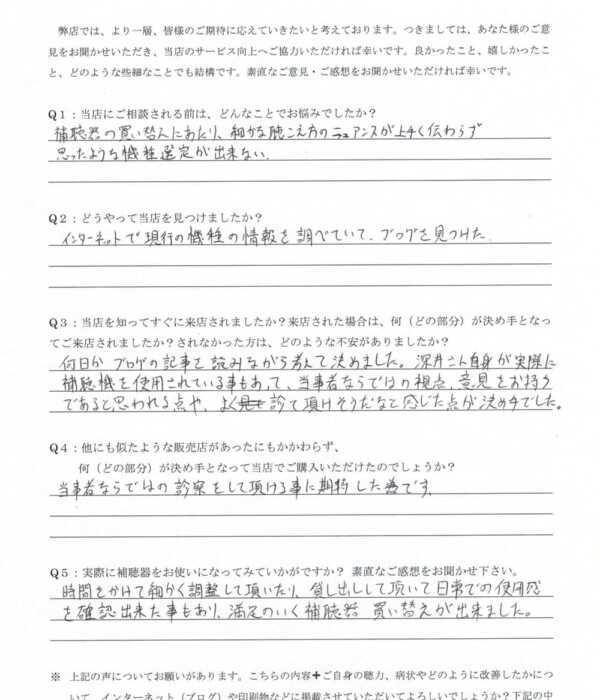 弊店では、より一層、皆様のご期待に応えていきたいと考えております。つきましては、あなた様のご意
見をお聞かせいただき、当店のサービス向上へご協力いただければ幸いです。良かったこと、嬉しかったこ
と、どのような些細なことでも結構です。素直なご意見・ご感想をお聞かせいただければ幸いです。
Q1:当店にご相談される前は、どんなことでお悩みでしたか？
補聴器の買い替えにあたり、細かな聴こえ方のニュアンスが上手く伝わらず
思ったような機種選定が出来ない.
Q2:どうやって当店を見つけましたか？
インターネットで現行の機種の情報を調べていて、ブログを見つけた.
Q3:当店を知ってすぐに来店されましたか？来店された場合は、何（どの部分）が決め手となっ
てご来店されましたか？されなかった方は、どのような不安がありましたか？
何日かブログの記事を読みながら考えて決めました。深井さん自身が実際に
補聴機を使用されている事もあって、当事者ならではの視点、意見をお持ち
であると思われる点や、よく診て頂けそうだなと感じた点が決め手でした。
Q4:他にも似たような販売店があったにもかかわらず、
何（どの部分）が決め手となって当店でご購入いただけたのでしょうか？
当事者ならではの診察をして頂ける事に期待した為です.
Q5:実際に補聴器をお使いになってみていかがですか？ 素直なご感想をお聞かせ下さい。
時間をかけて細かく調整して頂いたり、貸し出しして頂いて日常での使用感
を確認出来た事もあり、満足のいく補聴器 買い替えが出来ました。
※ 上記の声についてお願いがあります。こちらの内容＋ご自身の聴力、病状やどのように改善したかにつ
いて、インターネット（ブログ）や印刷物などに掲載させていただいてよろしいでしょうか？下記の中